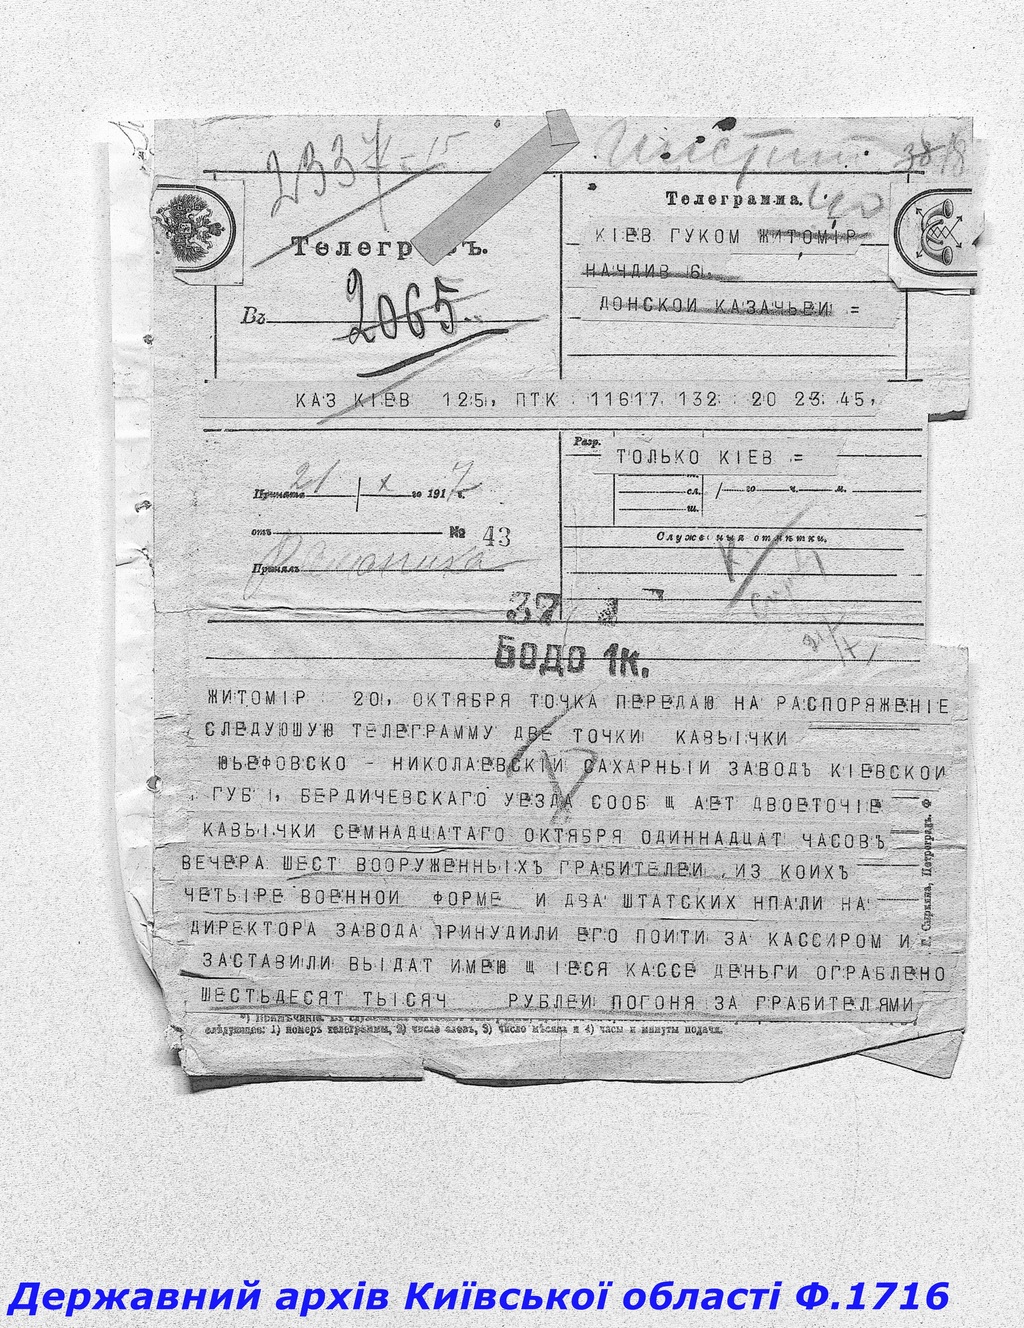 2337-15
38/8
Телеграмма.
КІЕВ ГУКОМ ЖИТОМІР
Телегр ъ.
НАЧДИВ 6
ДОНСКОЙ КАЗАЧЬЕЙ =
Въ 2065
КАЗ КІЕВ 125, ПТК 11617 132 20 23 45,
Разр.
ТОЛЬКО КІЕВ =
Принята 21/X го 1917 г.
сл. го ч. м.
ш.
отъ № 43
Служебныя отмѣтки.
Принялъ
37 1
БОДО 1К.
ЖИТОМІР 20, ОКТЯБРЯ ТОЧКА ПЕРЕДАЮ НА РАСПОРЯЖЕНІЕ
СЛЕДУЮШУЮ ТЕЛЕГРАММУ ДВЕ ТОЧКИ КАВЫЧКИ
ЮЬЕФОВСКО - НИКОЛАЕВСКІЙ САХАРНЫЙ ЗАВОДЪ КІЕВСКОЙ
ГУБ, БЕРДИЧЕВСКАГО УЕЗДА СООБ Щ АЕТ ДВОЕТОЧІЕ
КАВЫЧКИ СЕМНАДЦАТАГО ОКТЯБРЯ ОДИННАДЦАТ ЧАСОВЪ
ВЕЧЕРА ШЕСТ ВООРУЖЕННЫХЪ ГРАБИТЕЛЕЙ ,ИЗ КОИХЪ
ЧЕТЫРЕ ВОЕННОЙ ФОРМЕ И ДВА ШТАТСКИХ НПАЛИ НА
ДИРЕКТОРА ЗАВОДА ПРИНУДИЛИ ЕГО ПОЙТИ ЗА КАССИРОМ И
ЗАСТАВИЛИ ВЫДАТ ИМЕЮ Щ ІЕСЯ КАССЕ ДЕНЬГИ ОГРАБЛЕНО
ШЕСТЬДЕСЯТ ТЫСЯЧ РУБЛЕЙ ПОГОНЯ ЗА ГРАБИТЕЛЯМИ
*) Примѣчаніе. Въ
слѣдующая: 1) номеръ телеграммы, 2) число словъ, 3) число мѣсяца и 4) часы и минуты подачи.
г. Сыркина, Петроградъ. Ф
Державний архів Київської області Ф.1716